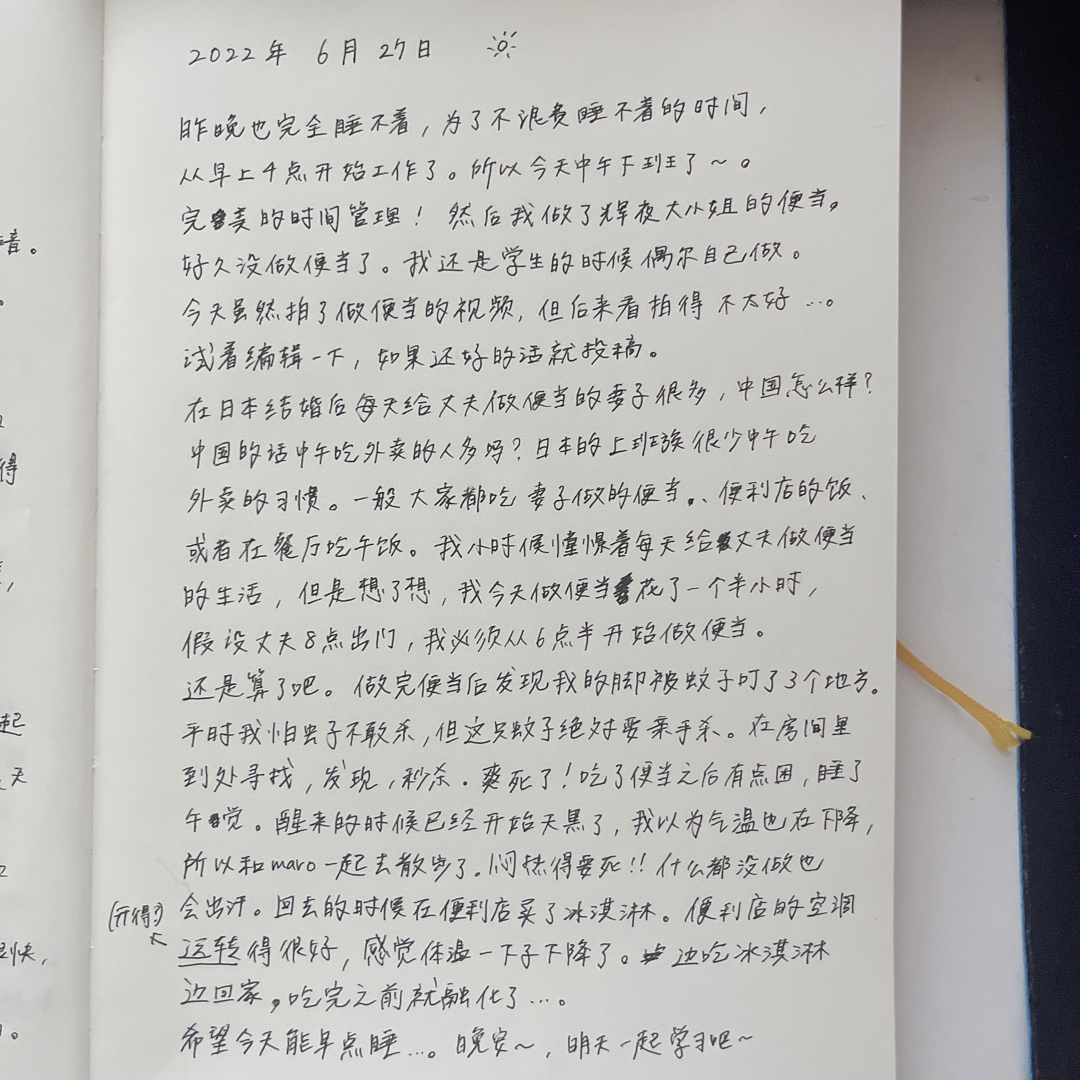 2022年 6月 27日
昨晚也完全睡不着，为了不浪费睡不着的时间，
从早上4点开始工作了。所以今天中午下班了～。
完美的时间管理！ 然后我做了辉夜大小姐的便当。
好久没做便当了。我还是学生的时候偶尔自己做。
今天虽然拍了做便当的视频，但后来看拍得不太好…。
试着编辑一下，如果还好的话就投稿。
在日本结婚后每天给丈夫做便当的妻子很多，中国怎么样？
中国的话中午吃外卖的人多吗？日本的上班族很少中午吃
外卖的习惯。一般大家都吃妻子做的便当、便利店的饭、
或者在餐厅吃午饭。我小时候憧憬着每天给丈夫做便当
的生活，但是想了想，我今天做便当花了一个半小时，
假设丈夫8点出门，我必须从6点半开始做便当。
还是算了吧。做完便当后发现我的脚被蚊子叮了3个地方。
平时我怕虫子不敢杀，但这只蚊子绝对要亲手杀。在房间里
到处寻找，发现，秒杀．爽死了！吃了便当之后有点困，睡了
午觉。醒来的时候已经开始天黑了，我以为气温也在下降，
所以和maro一起去散步了．闷热得要死！！什么都没做也
会出汗。回去的时候在便利店买了冰淇淋。便利店的空调
(开得?)
运转得很好，感觉体温一下子下降了。边吃冰淇淋
边回家，吃完之前就融化了…。
希望今天能早点睡…。晚安～，明天一起学习吧～
音。
。
得
，
起
天
快，
。